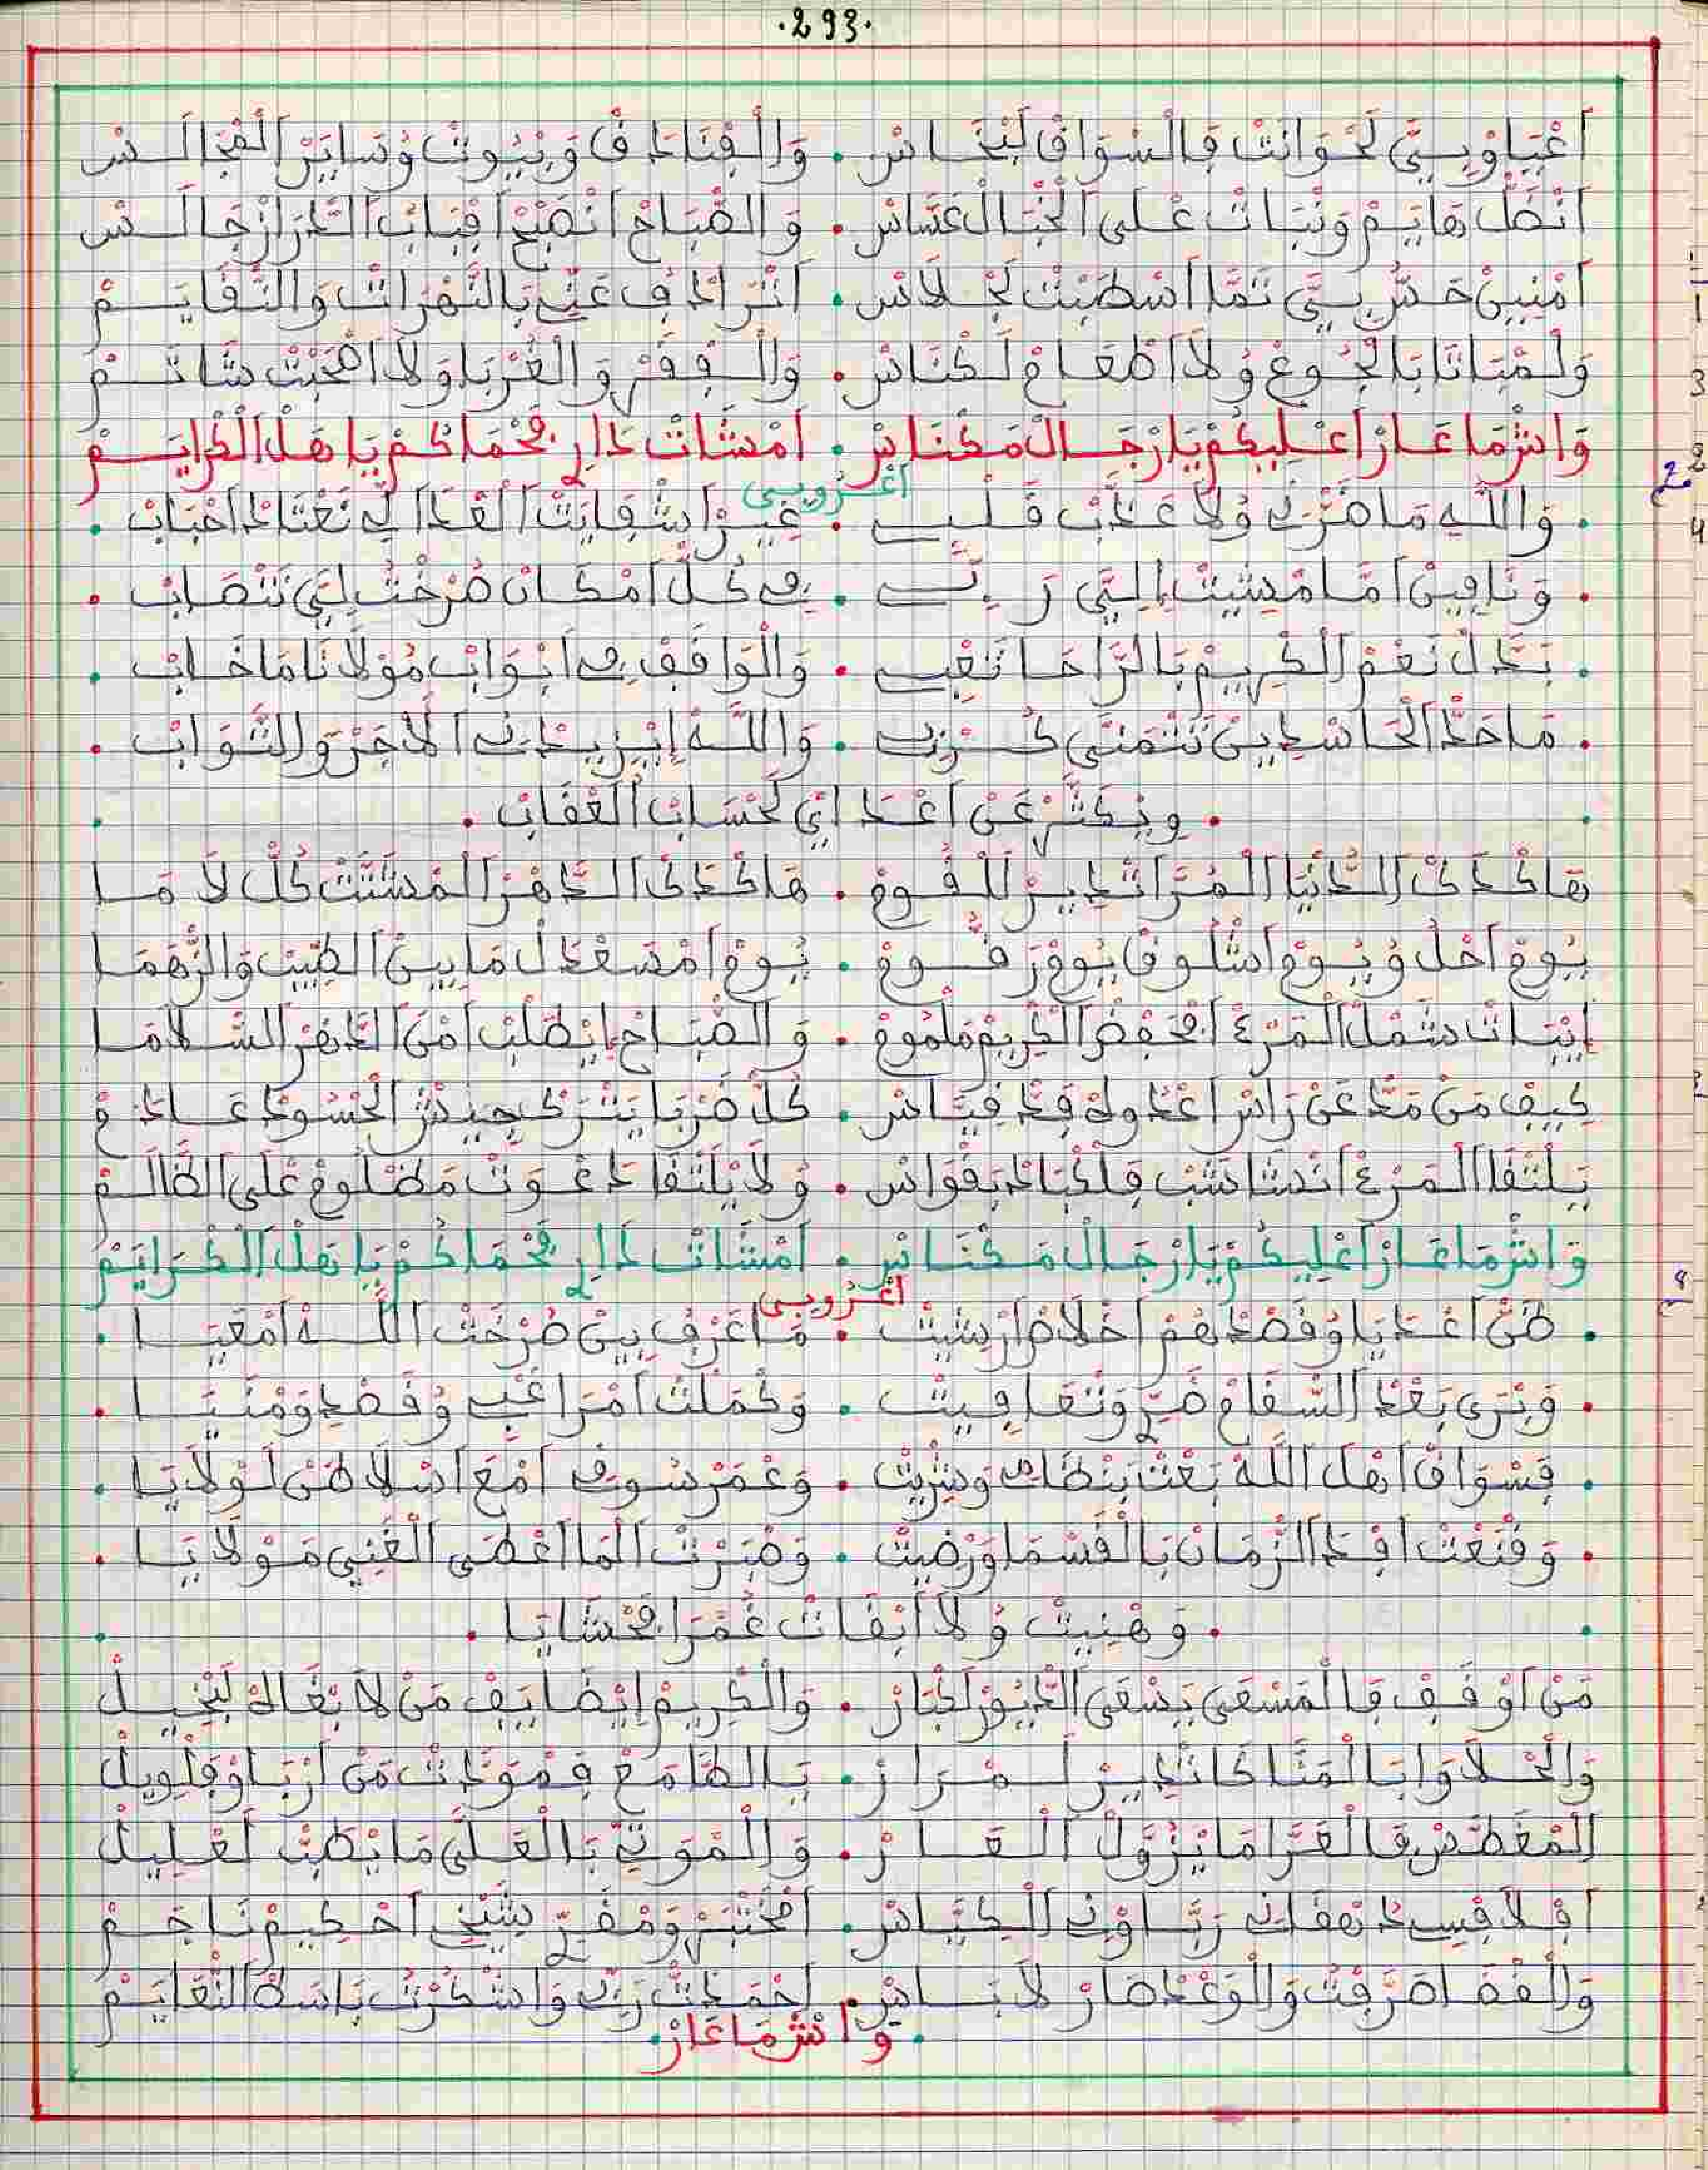 .293.
أَعْيَاوْ بِيَّ لَحْوَانَتْ فَالسْوَاقْ لَبْخَاسْ . وَالْفْنَادَقْ وَبْيُوتْ وُسَايَرْ الْمْجَالَسْ
أَنْضَلْ هَايَمْ وَنْبَاتْ عْلَى الْخْبَالْ عَسَّاسْ . وَالصّْبَاحْ أَنْصَبْحْ أَفْبَابْ الدّْرَازْ جَالَسْ
أَمْنِينْ حَسّْ بِيَّ تَمَّا أَسْطَبْتْ لَجْلَاسْ . أَتْرَادَفْ عَنِّي بَالنَّهْرَاتْ وَالنّْقَايَمْ
وَلْمْبَاتَا بَالْجُوعْ وُلَا أَطْعَامْ لَكْنَاسْ . وَالْفْقَرْ وَالْغُرْبَا وَلَا أَصْحَبْتْ شَاتَمْ
وَاشْ مَا عَارْ أَعْلِيكُمْ يَا رْجَالْ مَكْنَاسْ . أَمْشَاتْ دَارِي فَحْمَاكُمْ يَا هَلْ الْكْرَايَمْ
أَعْرُوبِي
. وَاللَّهْ مَا ضَرّْنِي وُلَا عَذَّبْ قَلْبِي . غِيرْ أَشْفَايَتْ الْعْدَا الِّي نَعْتَادْ أَحْبَابْ .
. وَنَايِنْ أَمَّا مْشِيتْ إِلِيَّ رَبِّي . فِي كُلّْ أَمْكَانْ صُرْخْتْ لِيَّ تَنْصَابْ .
. بَدَّلْ نَعْمْ الْكْرِيمْ بَالرَّاحَا تَعْبِي . وَالْوَاقَفْ فِي أَبْوَابْ مُوْلَانَا مَا خَابْ .
. مَا حَدّْ الْحَاسْدِينْ تَتْمَنَّى كُرْبِي . وَاللَّهْ إِيزِيدْنِي الْأَجَرْ وَالثّْوَابْ .
. وِيكَتَّرْ عَنْ أَعْدَايْ لَحْسَابْ الْعْقَابْ .
هَاكْدَاكْ الدَّنْيَا الْمُرَّا اتْدِيرْ لَلْقُومْ . هَاكْدَاكْ الدَّهْرْ الْمَشَتَّتْ كُلّْ لَامَا
يُومْ أَحْلُ وُيُومْ أَشْلُوقْ يُومْ زَقُّومْ . يُومْ أَمْسَعْدَلْ مَا بِينْ الطِّيبْ وَالزّْهَمَا
إِيبَاتْ شَمْلْ الْمَرْءْ أَفْحَفْضْ الْكْرِيمْ مَلْمُومْ . وَالصّْبَاحْ إِيطْلَبْ أَمْنْ الدَّهْرْ السّْلَامَا
كِيفْ مَنْ مَدّْ عَنْ رَاسْ أَعْدُوهْ قَدّْ فِيَّاسْ . كُلّْ ضَرْبَا يَتْرَكْ جِيشْ الْحْسُودْ عَادَمْ
يَلْتْقَا الْمَرْءْ أَنْشَاشَبْ فَلْكْبَادْ بَقْوَاسْ . وُلَا يَلْتْقَا دَعْوَتْ مَظْلُومْ عْلَى الظَّالَمْ
وَاشْ مَا عَارْ أَعْلِيكُمْ يَا رْجَالْ مَكْنَاسْ . أَمْشَاتْ دَارِي فَحْمَاكُمْ يَا هَلْ الْكْرَايَمْ
أَعْرُوبِي
. ظَنّْ أَعْدَيَا وُقَصْدْهُمْ أَخْلَاصْ أَرْشِيتْ . مَا عَرْفُ بِينْ صُرْخْتْ اللَّهْ أَمْعَيَا .
. وَنْبْرَى بَعْدْ السّْقَامْ ضَرِّي وَنْتْعَافِيتْ . وَكْمْلْتْ أَمْرَاغْبِي وُقَصْدِي وَمْنَيَا .
. فَسْوَاقْ أَهْلْ اللَّهْ بَعْتْ بَنْظَامِي وَشْرِيتْ . وَعْمَرْ سُوقِي أَمْعَ أَسْلَاطَنْ لَوْلَايَا .
. وَقْنَعْتْ أَفْدَ الزّْمَانْ بَالْقَسْمَا وَرْضِيتْ . وَصْبَرْتْ الْمَا أَعْطَى الْغْنِي مَوْلَايَا .
. وَهْنِيتْ وُلَا أَبْقَاتْ غُمَّرَا فَحْشَايَا .
مَنْ أَوْقَفْ فَالْمَسْقَى يَسْقَى الدّْيُورْ لَكْبَارْ . وَالْكْرِيمْ إِيضَايَفْ مَنْ لَا بْغَاهْ لَبْخِيلْ
وَالْحْلَاوَا بَالْمَتَّا كَاتْدِيرْ لَمْرَارْ . بَالطَّامَعْ فَمْوَدّْتْ مَنْ أَرْبَاوْ قْلِيلْ
الْمْغَطَّسْ فَالْعَرَّا مَا يْزُوَّلْ الْعَارْ . وَالْمَوْتِي بَالْعَلَّى مَا يْطَبّْ لَعْلِيلْ
أَفْلَافِيسْ دْهْقَانِي رَبَّاوْنِي الْكْيَّاسْ . أَمْخَنْتَرْ وَمْقَرِّي شَيْخِي أَحْكِيمْ نَاجَمْ
وَالْقْضَا صَرَّفْتْ وَالْوَعْدْ صَارْ لَا بَاسْ . أَحْمَدْتْ رَبِّي وَاشْكَرْتْ بَاسَطْ النّْعَايَمْ
. وَاشْ مَا عَارْ .